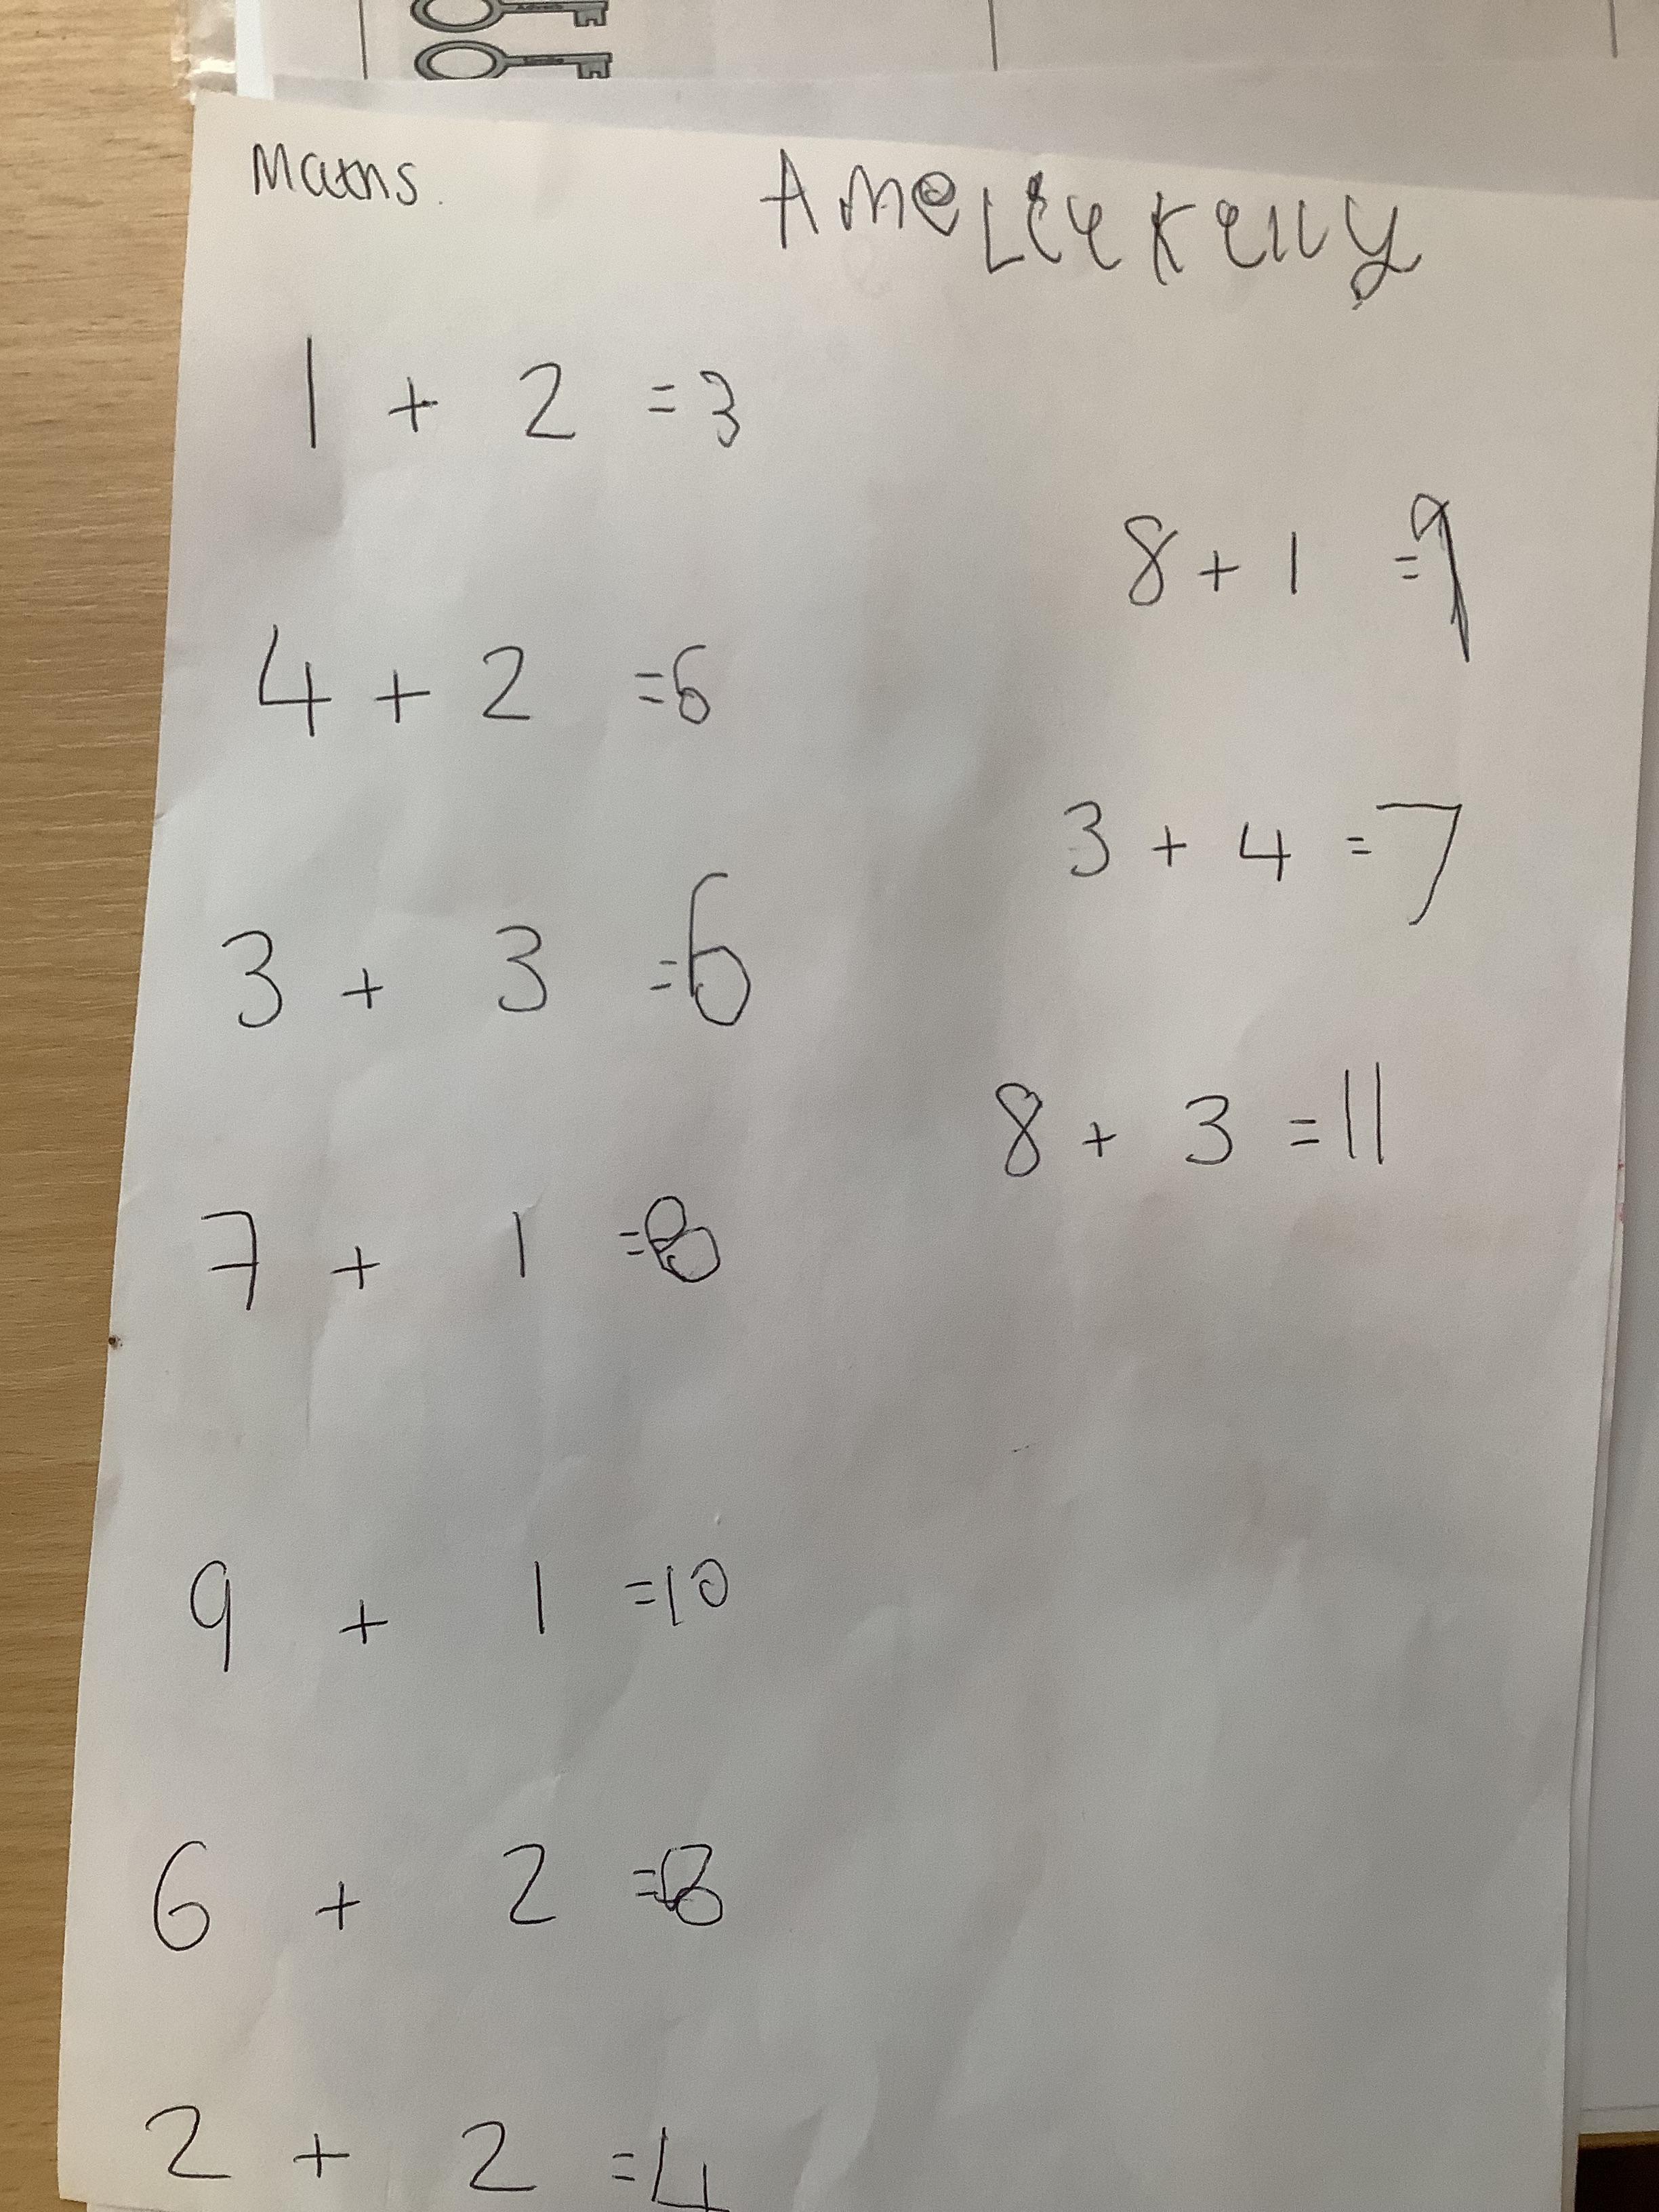 Maths.
Amelie Kelly
1 + 2 = 3
4 + 2 = 6
3 + 3 = 6
7 + 1 = 8
9 + 1 = 10
6 + 2 = 8
2 + 2 = 4
8 + 1 = 9
3 + 4 = 7
8 + 3 = 11